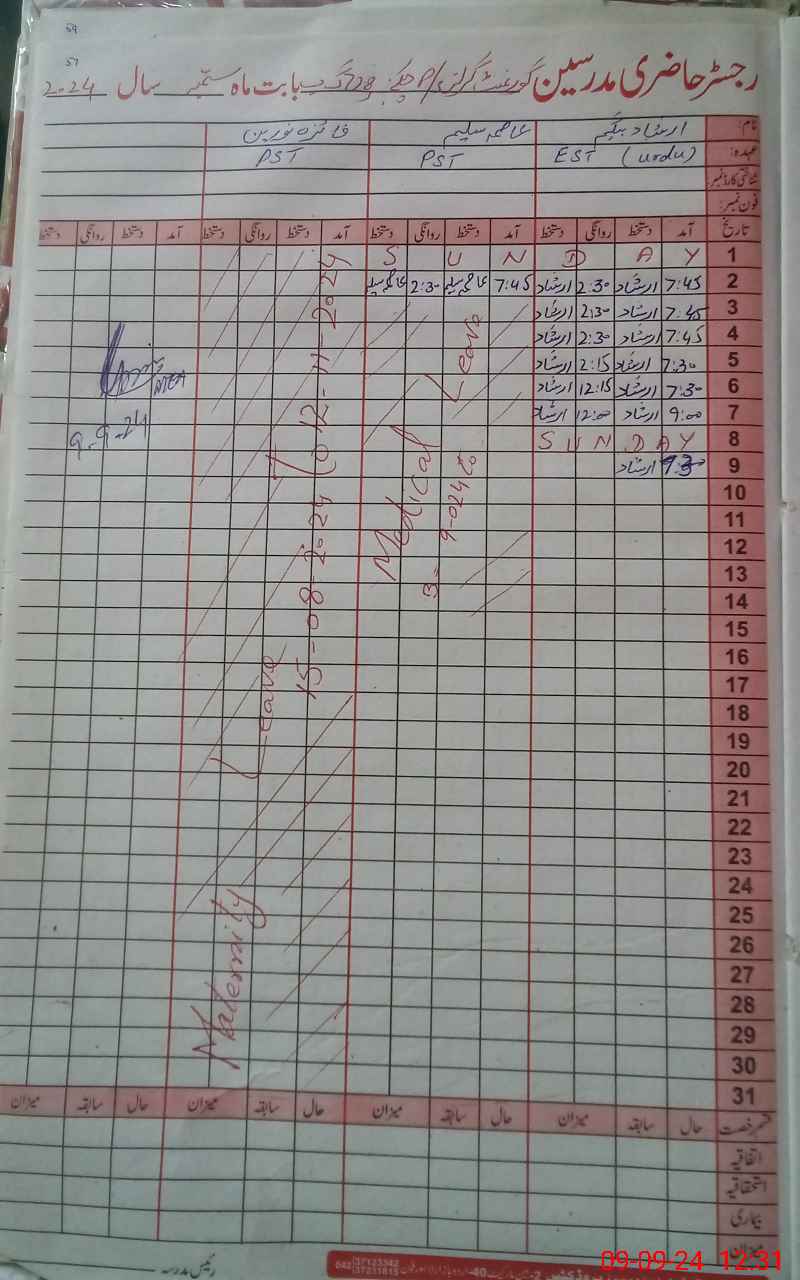 رجسٹر حاضری مدرسین گورنمنٹ گرلز P/S چک 728 گ ب بابت ماہ ستمبر سال 2024
نام: ارشاد بیگم عاصمہ سلیم فائزہ نورین
عہدہ: EST (urdu) PST PST
شناختی کارڈ نمبر:
فون نمبر:
تاریخ آمد دستخط روانگی دستخط آمد دستخط روانگی دستخط آمد دستخط روانگی دستخط آمد دستخط روانگی دستخط
1 S U N D A Y
2 7:45 ارشاد 2:30 ارشاد 7:45 عاصمہ سلیم 2:30 عاصمہ سلیم
3 7:45 ارشاد 2:30 ارشاد
4 7:45 ارشاد 2:30 ارشاد
5 7:30 ارشاد 2:15 ارشاد
6 7:30 ارشاد 12:15 ارشاد
7 9:00 ارشاد 12:00 ارشاد
8 S U N D A Y
9 ارشاد
10
11
12
13
14
15
16
17
18
19
20
21
22
23
24
25
26
27
28
29
30
31
Medical Leave
Maternity Leave
15-08-2024 To 12-11-2024
9-9-24
قسم رخصت حال سابقہ میزان حال سابقہ میزان حال سابقہ میزان حال سابقہ میزان
اتفاقیہ
استحقاقیہ
بیماری
میزان
رئیس مدرسہ
042 37123342
37231815
09-09-24 12:31